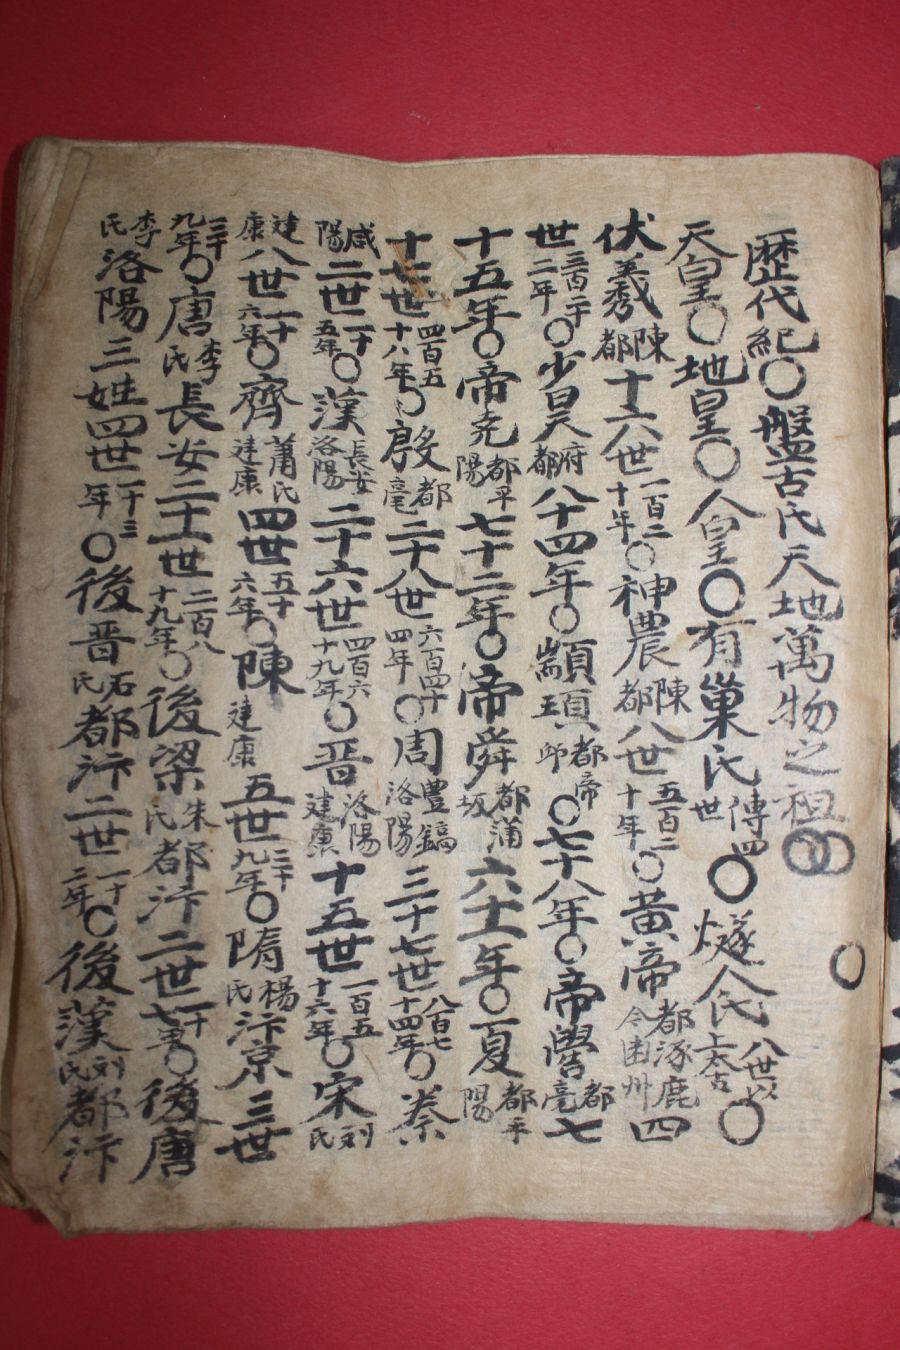 歷代紀〇盤古氏天地萬物之祖〇〇
天皇〇地皇〇人皇〇有巢氏傳四世〇燧人氏八世以上太古〇
伏羲都陳十六世一百二十年〇神農都陳八世五百二十年〇黃帝都涿鹿今幽州四
世三百二十二年〇少昊都府八十四年〇顓頊都帝邱〇七十八年〇帝嚳都亳七
十五年〇帝堯都平陽七十二年〇帝舜都蒲坂六十一年〇夏都平陽
十七世四百五十八年〇殷都亳二十八世六百四十四年〇周豐鎬洛陽三十七世八百七十四年〇秦
咸陽二世二十五年〇漢長安洛陽二十六世四百六十九年〇晋洛陽建康十五世一百五十六年〇宋刘氏
建康八世二十六年〇齊蕭氏建康四世五十六年〇陳建康五世三十九年〇隋楊氏汴京三世
三十九年〇唐李氏長安二十一世二百八十九年〇後梁朱氏都汴二世十七年〇後唐
李氏洛陽三姓四世一十三年〇後晋石氏都汴二世一十二年〇後漢刘氏都汴